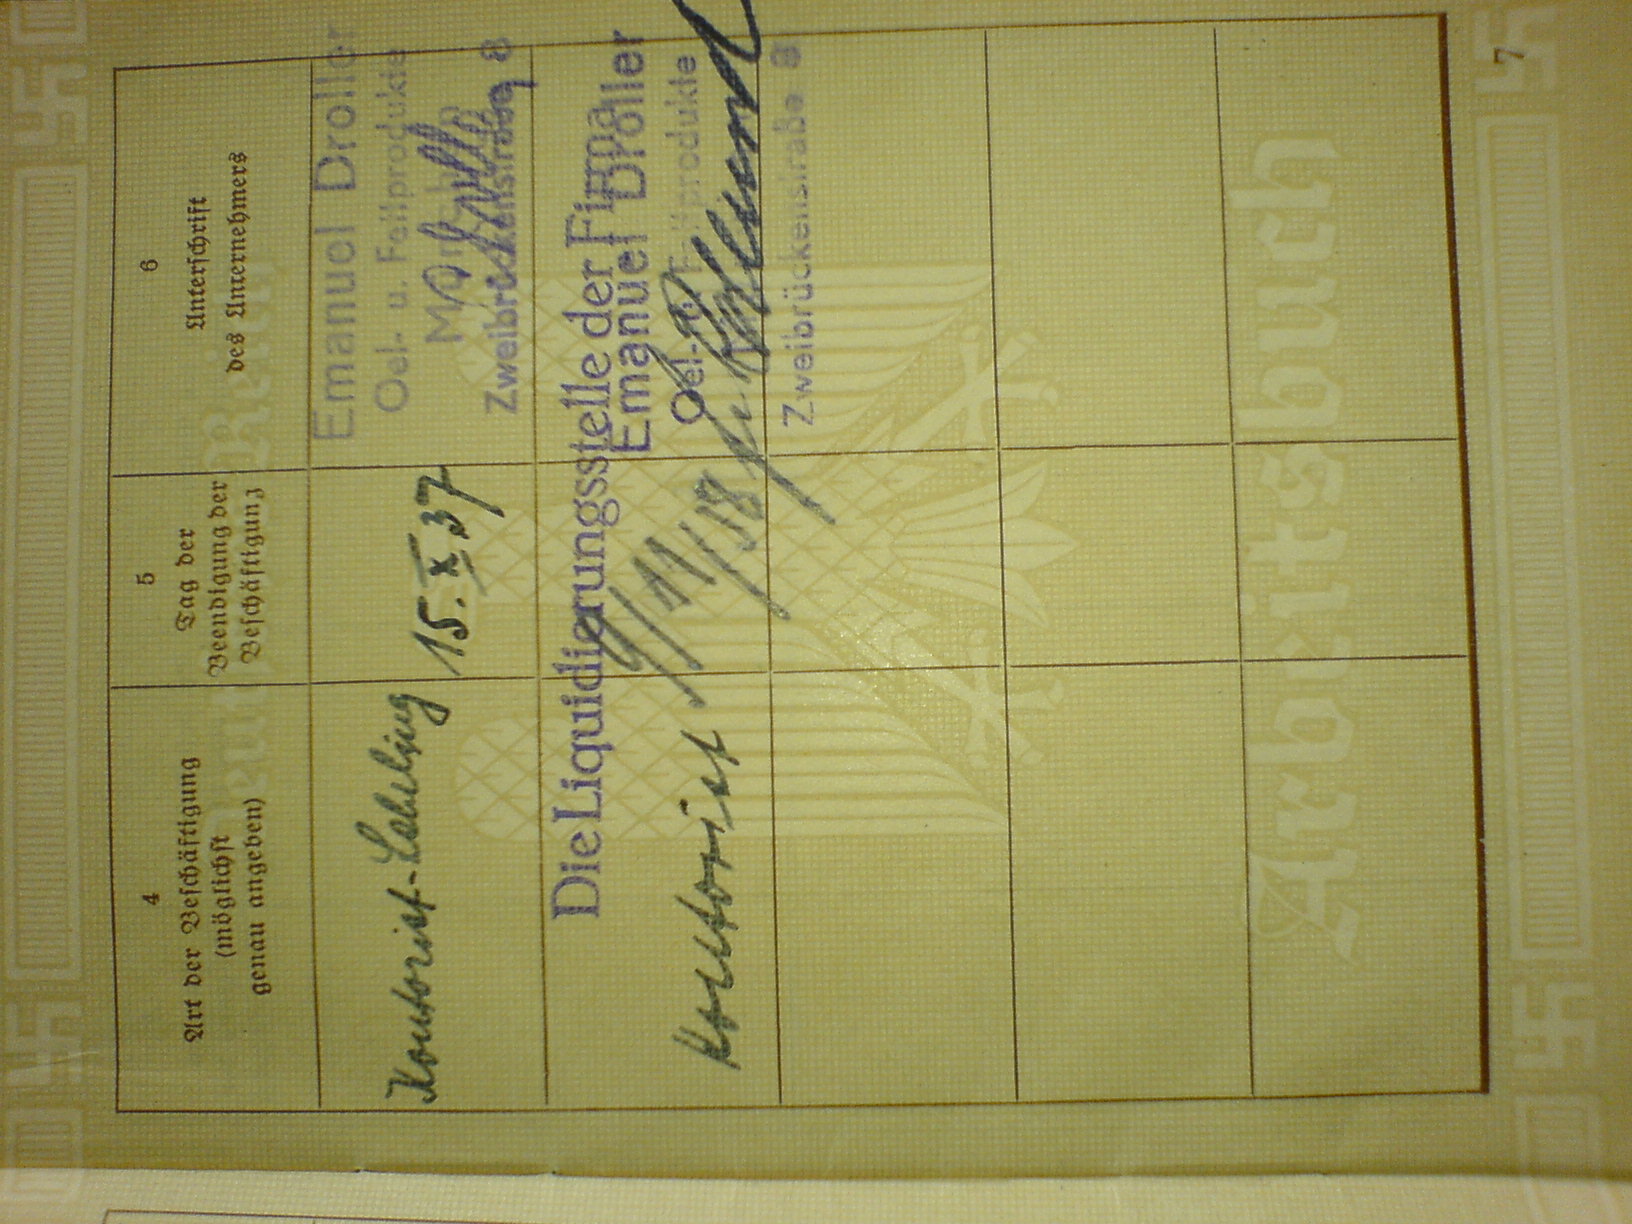 4
Art der Beschäftigung
(möglichst
genau angeben)
5
Tag der
Beendigung der
Beschäftigung
6
Unterschrift
des Unternehmers
Kontorist-Lehrling
15. X. 37
Emanuel Droller
Oel- u. Fettprodukte
Zweibrückenstrasse 8
Kontorist
9/11/38
Die Liquidierungsstelle der Firma
Emanuel Droller
Oel- u. Fettprodukte
Zweibrückenstraße 8
7
Arbeitsbuch